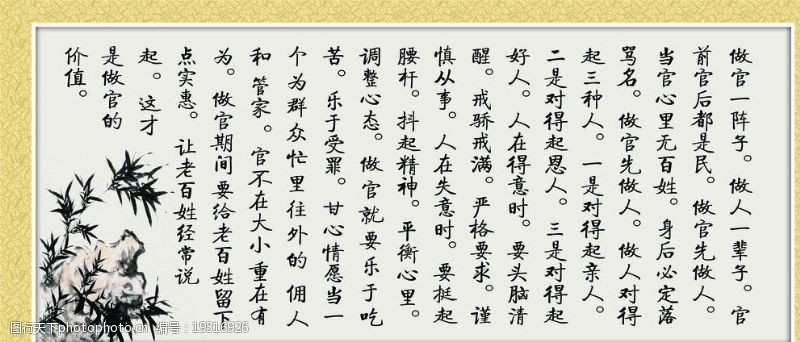 做官一阵子。做人一辈子。官
前官后都是民。做官先做人。
当官心里无百姓。身后必定落
骂名。做官先做人。做人对得
起三种人。一是对得起亲人。
二是对得起恩人。三是对得起
好人。人在得意时。要头脑清
醒。戒骄戒满。严格要求。谨
慎从事。人在失意时。要挺起
腰杆。抖起精神。平衡心里。
调整心态。做官就要乐于吃
苦。乐于受罪。甘心情愿当一
个为群众忙里往外的佣人
和管家。官不在大小重在有
为。做官期间要给老百姓留下
点实惠。让老百姓经常说
起。这才
是做官的
价值。
图行天下 photophoto.cn 编号：19316926